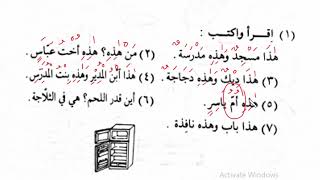 (١) اِقْرَأْ وَاكْتُبْ :
هٰذَا مَسْجِدٌ وَهٰذِهِ مَدْرَسَةٌ. (٢) مَنْ هٰذِهِ؟ هٰذِهِ أُخْتُ عَبَّاسٍ.
(٣) هٰذَا دِيكٌ وَهٰذِهِ دَجَاجَةٌ. (٤) هٰذَا ابْنُ الْمُدِيْرِ وَهٰذِهِ بِنْتُ الْمُدَرِّسِ.
(٥) هٰذِهِ أُمُّ يَاسِرٍ. (٦) أين قدر اللحم؟ هي في الثلاجة.
(٧) هذا باب وهذه نافذة.
Activate Windows